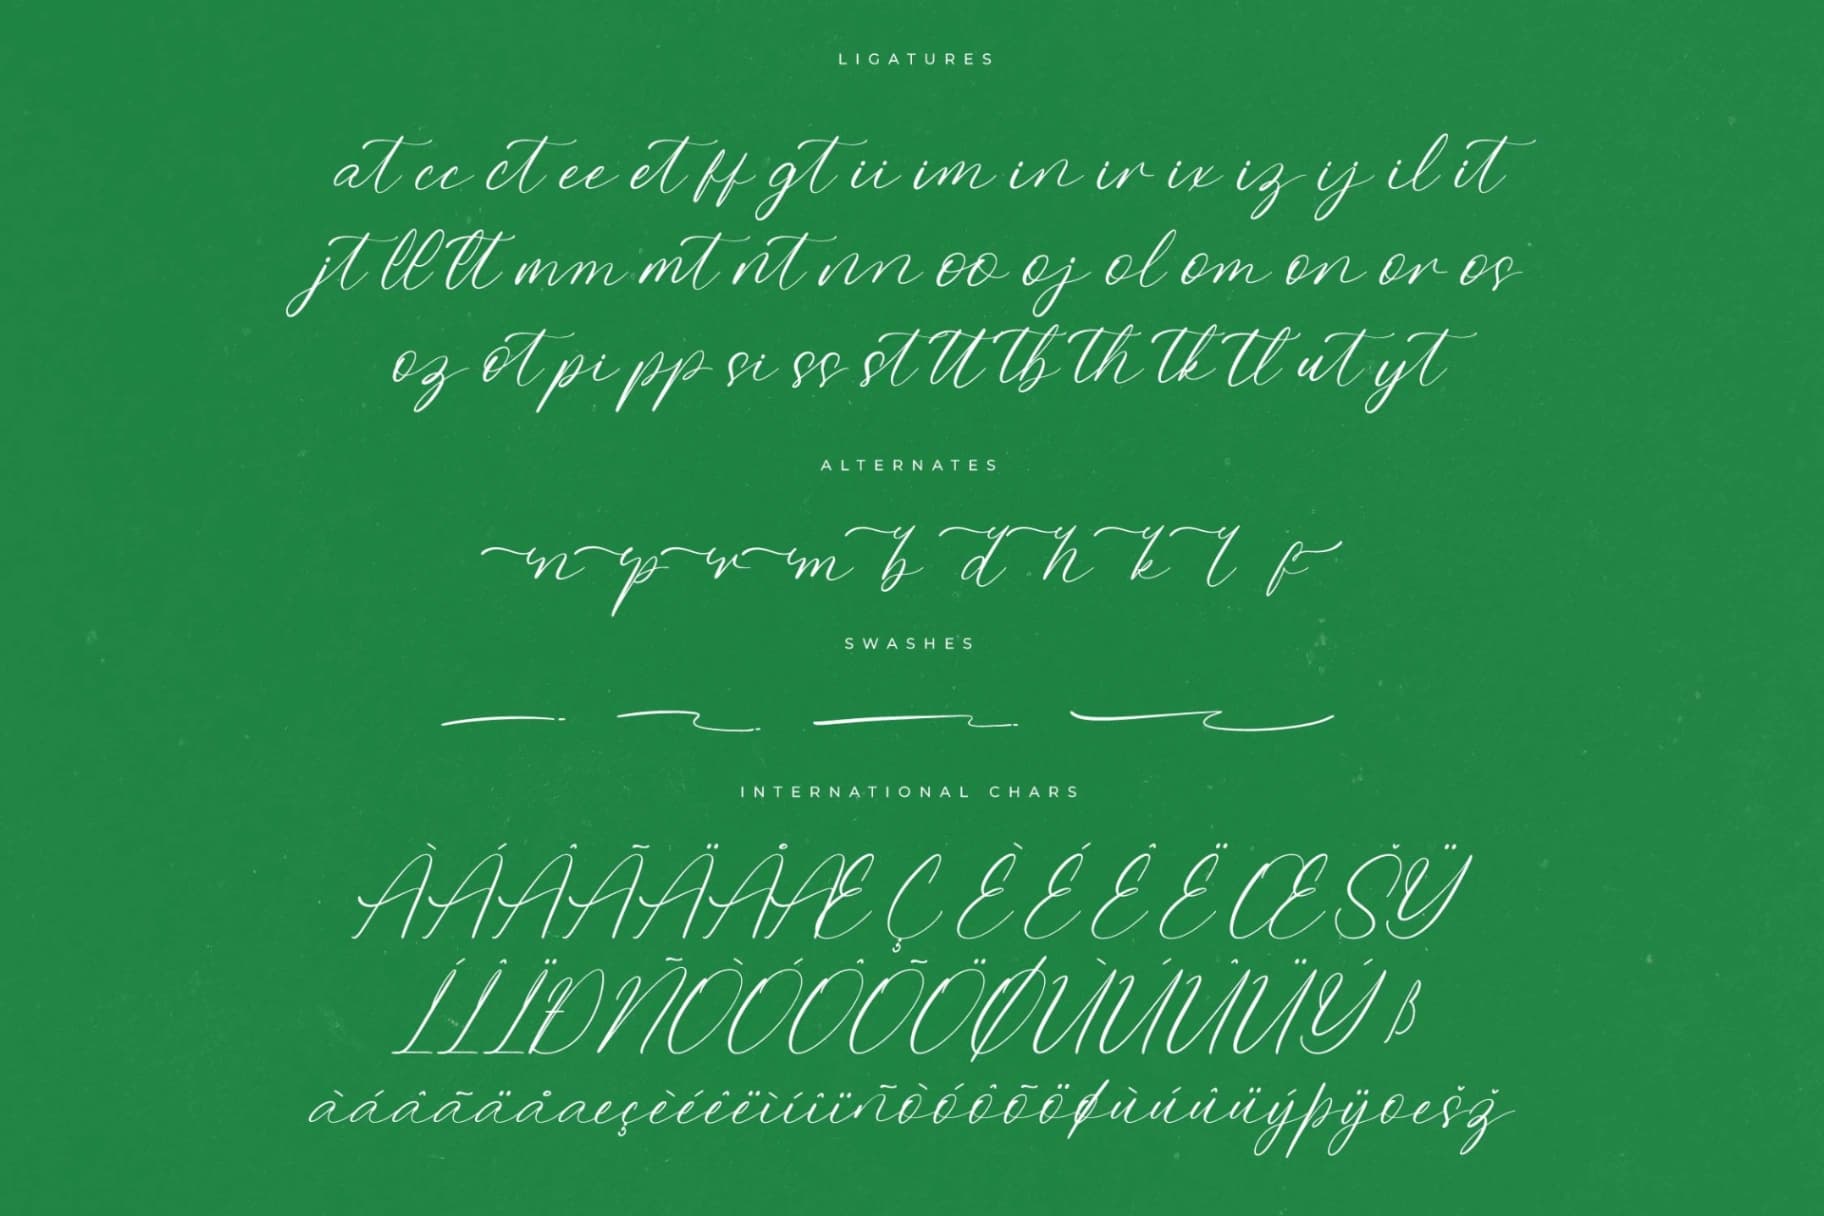 LIGATURES
at cc ct ee et ff gt ii im in ir ix iz ij il it
jt ll tt mm mt nt nn oo oj ol om on or os
oz ot pi pp si ss st tt tb th tk tl ut yt
ALTERNATES
n p r m b d h k l f
SWASHES
INTERNATIONAL CHARS
À Á Â Ã Ä Å Æ Ç È É Ê Ë Œ Š Ÿ
Í Î Ï Ð Ñ Ò Ó Ô Õ Ö Ø Ù Ú Û Ü Ý ß
à á â ã ä å æ ç è é ê ë ì í î ï ñ ò ó ô õ ö ø ù ú û ü ý þ ÿ œ š ž